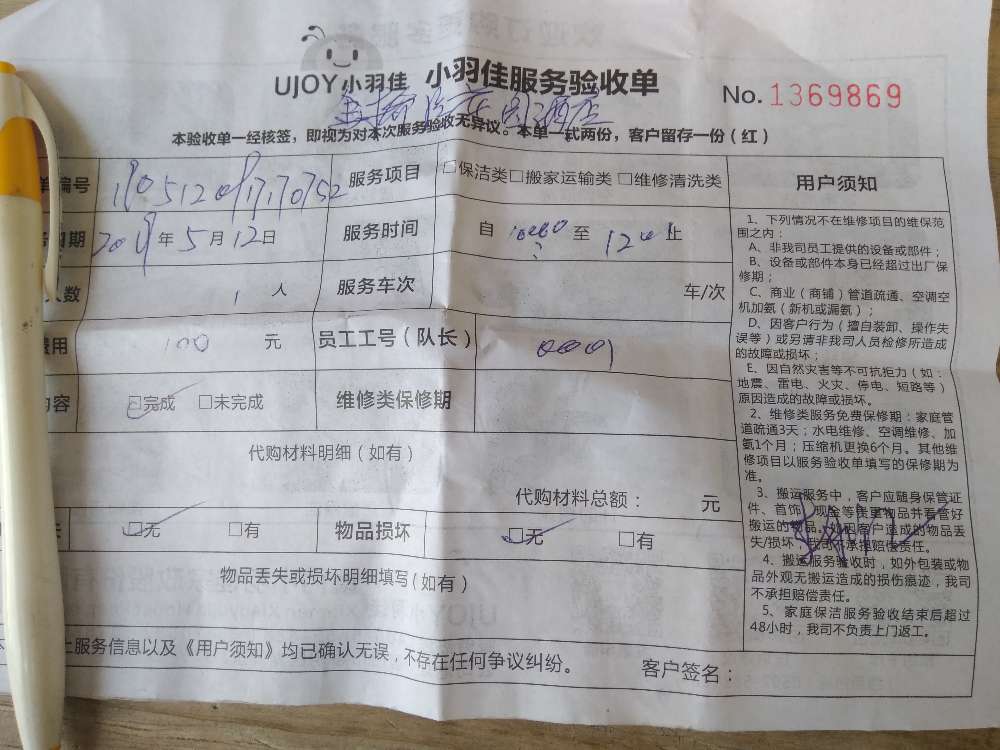 UJOY小羽佳 小羽佳服务验收单 No. 1369869
本验收单一经核签，即视为对本次服务验收无异议。本单一式两份，客户留存一份（红）
编号 服务项目 □保洁类□搬家运输类□维修清洗类
期 2019年5月12日 服务时间 自 至 止
人数 1 人 服务车次 车/次
费用 100 元 员工工号（队长） 0001
内容 □完成 □未完成 维修类保修期
代购材料明细（如有）
代购材料总额： 元
□无 □有 物品损坏 □无 □有
物品丢失或损坏明细填写（如有）
上服务信息以及《用户须知》均已确认无误，不存在任何争议纠纷。 客户签名：
用户须知
1、下列情况不在维修项目的维保范
围之内：
A、非我司员工提供的设备或部件；
B、设备或部件本身已经超过出厂保
修期；
C、商业（商铺）管道疏通、空调空
机加氨（新机或漏氨）；
D、因客户行为（擅自装卸、操作失
误等）或另请非我司人员检修所造成
的故障或损坏；
E、因自然灾害等不可抗拒力（如：
地震、雷电、火灾、停电、短路等）
原因造成的故障或损坏。
2、维修类服务免费保修期：家庭管
道疏通3天；水电维修、空调维修、加
氨1个月；压缩机更换6个月。其他维
修项目以服务验收单填写的保修期为
准。
3、搬运服务中，客户应随身保管证
件、首饰、现金等贵重物品并看管好
搬运的物品。如因客户造成的物品丢
失/损坏，我司不承担赔偿责任。
4、搬运服务验收时，如外包装或物
品外观无搬运造成的损伤痕迹，我司
不承担赔偿责任。
5、家庭保洁服务验收结束后超过
48小时，我司不负责上门返工。